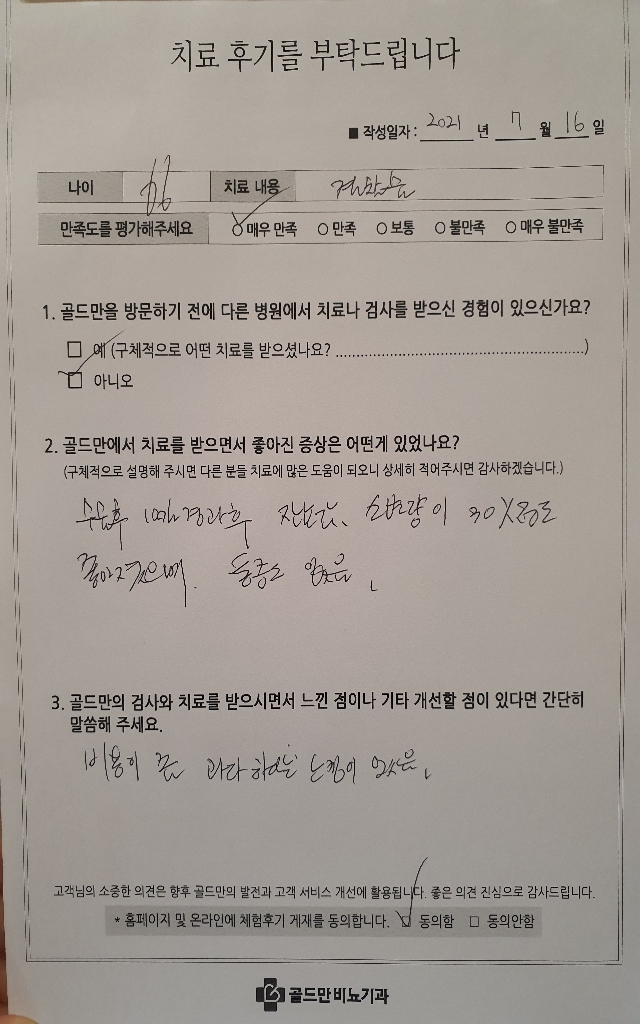 치료 후기를 부탁드립니다
■ 작성일자 : 2021 년 7 월 16 일
나이 66 치료 내용 전립선
만족도를 평가해주세요 ○ 매우 만족 ○ 만족 ○ 보통 ○ 불만족 ○ 매우 불만족
1. 골드만을 방문하기 전에 다른 병원에서 치료나 검사를 받으신 경험이 있으신가요?
□ 예 (구체적으로 어떤 치료를 받으셨나요? ........................................................)
□ 아니오
2. 골드만에서 치료를 받으면서 좋아진 증상은 어떤게 있었나요?
(구체적으로 설명해 주시면 다른 분들 치료에 많은 도움이 되오니 상세히 적어주시면 감사하겠습니다.)
수술후 경과후 잔뇨감, 소변량이 30%정도
좋아졌으며. 통증도 없음.
3. 골드만의 검사와 치료를 받으시면서 느낀 점이나 기타 개선할 점이 있다면 간단히
말씀해 주세요.
비용이 좀 과다하다는 느낌이 있음.
고객님의 소중한 의견은 향후 골드만의 발전과 고객 서비스 개선에 활용됩니다. 좋은 의견 진심으로 감사드립니다.
* 홈페이지 및 온라인에 체험후기 게재를 동의합니다. □ 동의함 □ 동의안함
골드만비뇨기과